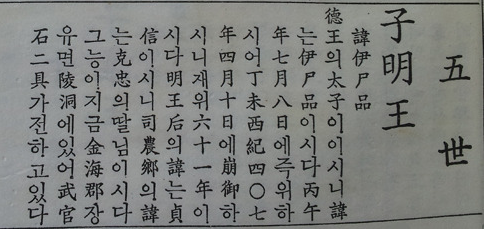 五世
子明王
諱伊尸品
德王의太子이이시니諱
는伊尸品이시다丙午
年七月八日에즉위하
시어丁未西紀四〇七
年四月十日에崩御하
시니재위六十一年이
시다明王后의諱는貞
信이시니司農鄉의諱
는克忠의딸님이시다
그능이지금金海郡장
유면陵洞에있어武官
石二具가전하고있다